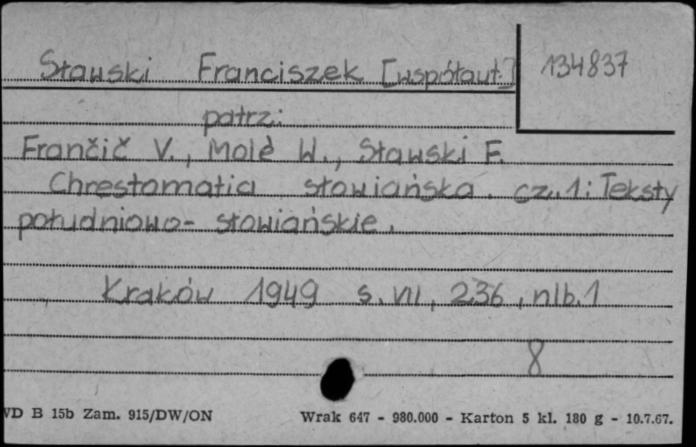 Sławski Franciszek [współaut.] 134837
patrz:
Frančič V., Molè W., Sławski F.
Chrestomatia słowiańska. cz. 1: Teksty
południowo-słowiańskie.
Kraków 1949 s. VII, 236, nlb. 1
8
WD B 15b Zam. 915/DW/ON Wrak 647 - 980.000 - Karton 5 kl. 180 g - 10.7.67.